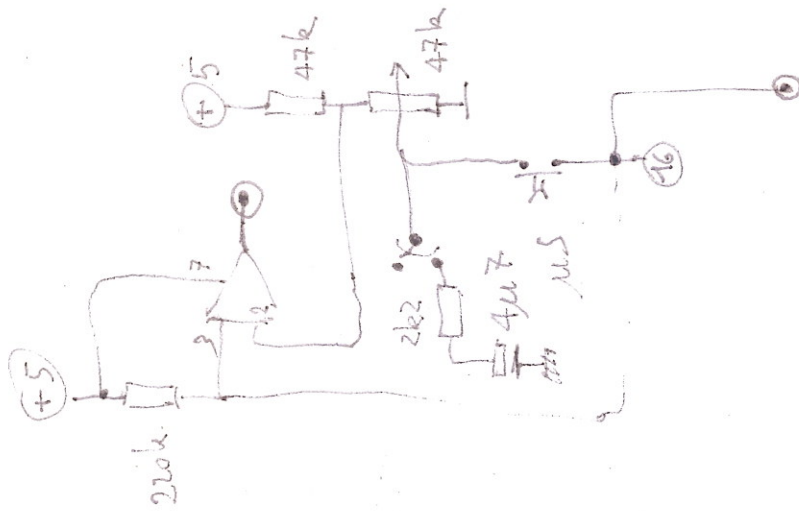 +5
47k
47k
+5
7
3
2
220k
2k2
4µ7
µS
16